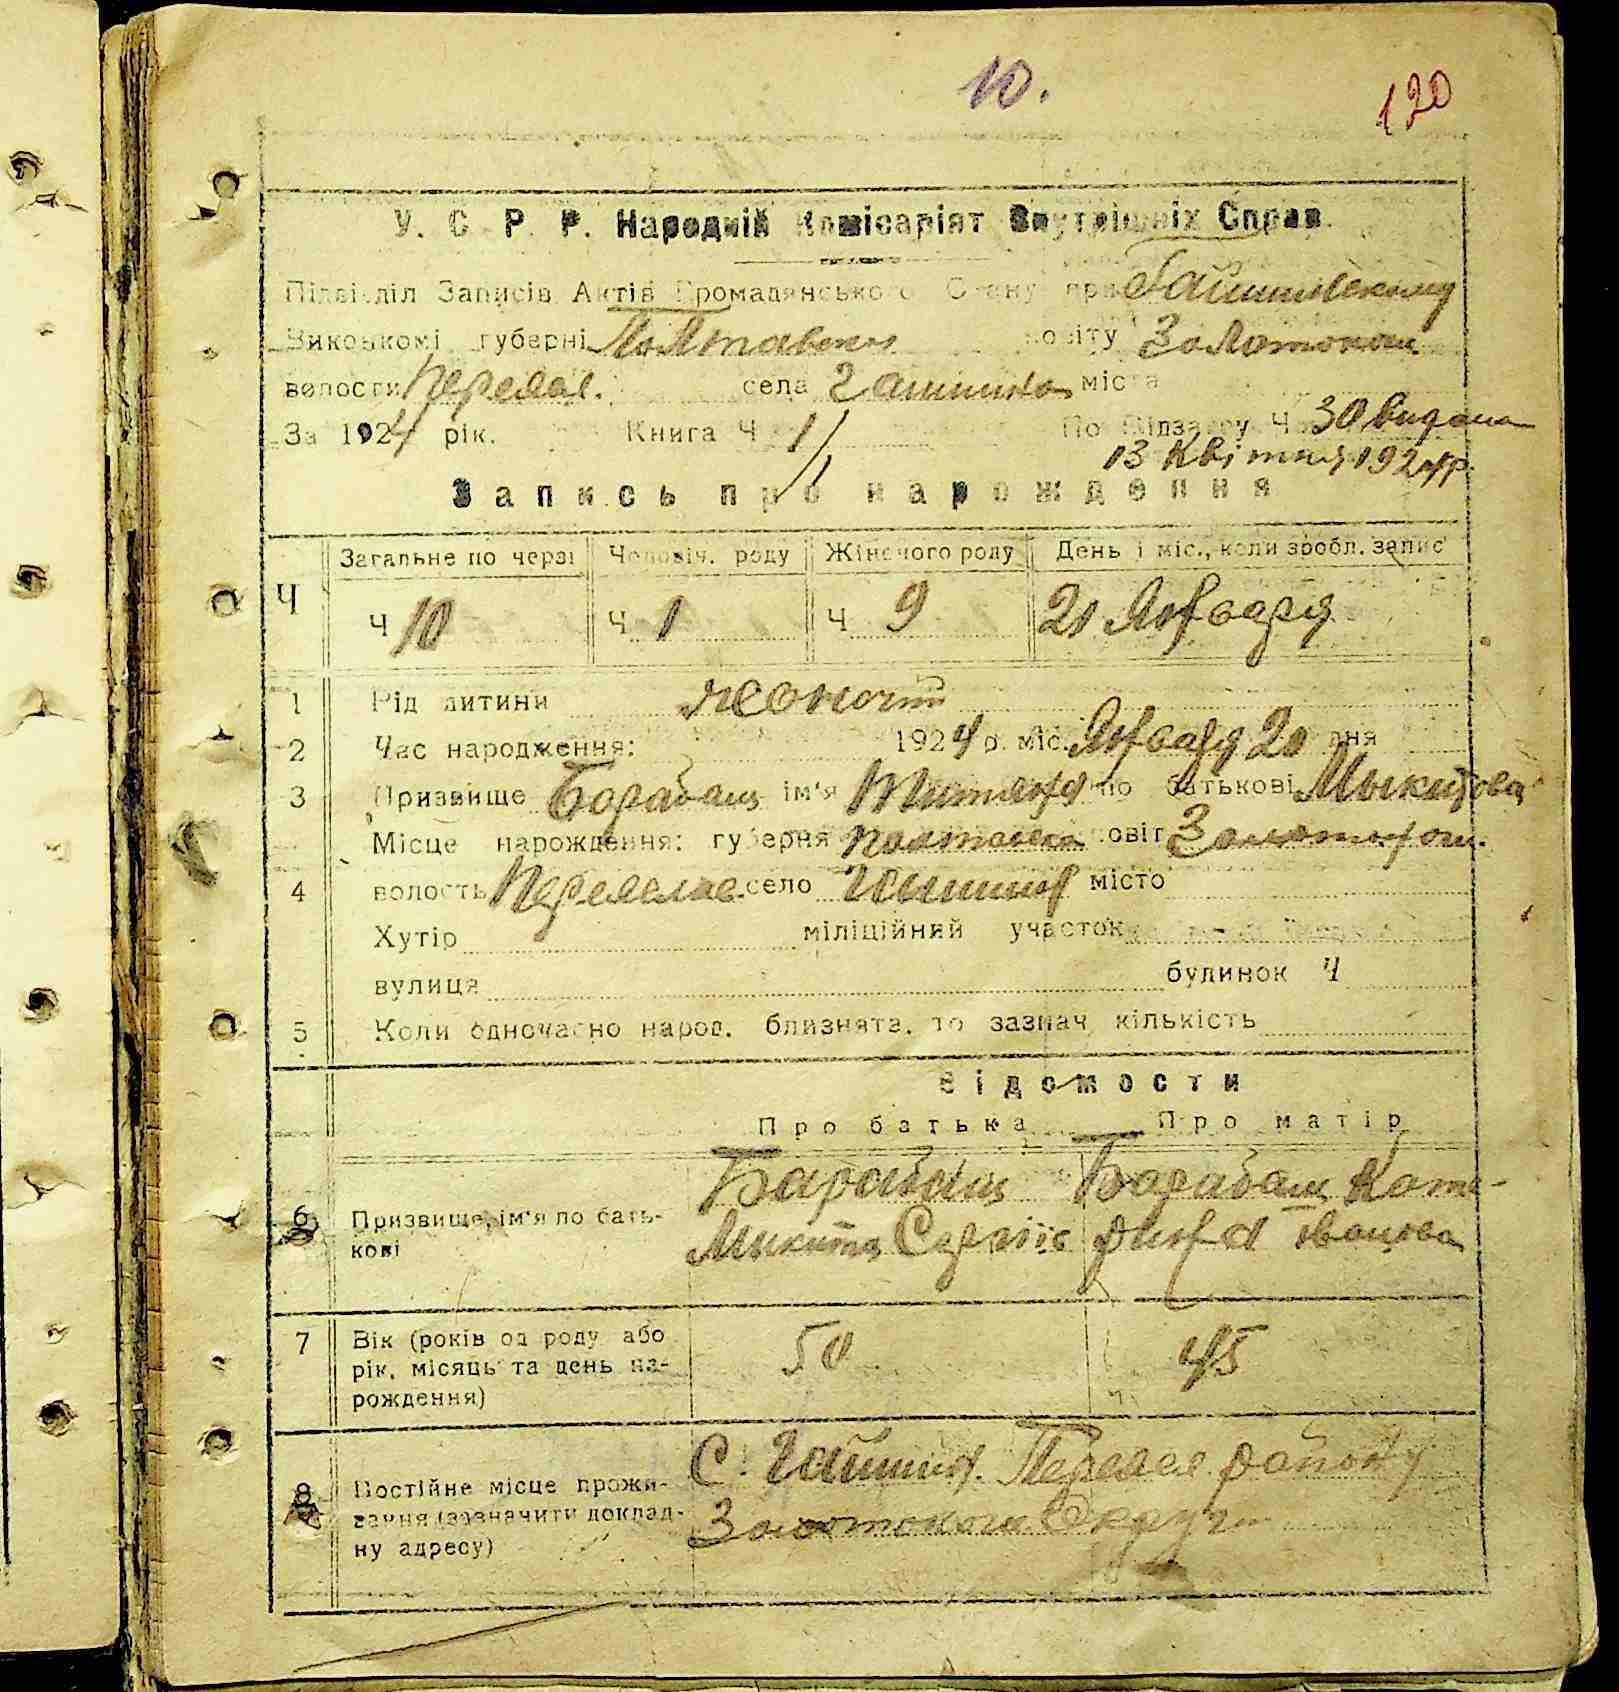 10.
120
У. С. Р. Р. Народній Комісаріят Внутрішніх Справ.
Підвідділ Записів Актів Громадянського Стану при Гайшинському
Виконкомі губерні Полтавськ повіту Золотонош
волости Переясл. села Гайшина міста
За 1924 рік. Книга Ч 1 По Відзеву Ч 30 видана
13 Квітня 1924 р.
Запись про нарождення
Загальне по черзі Чоловіч. роду Жіночого роду День і міс., коли зробл. запис
Ч Ч 10 Ч 1 Ч 9 21 Января
1 Рід дитини женочий
2 Час народження: 1924 р. міс. Января 20 дня
3 Призвище Барабаш ім'я Татяна по батькові Мыкитова
Місце нарождення: губерня Полтавска повіт Золотонош.
4 волость Переяслав. село Гайшин місто
Хутір міліційний участок
вулиця будинок Ч
5 Коли одночасно народ. близнята, то зазнач. кількість
Відомости
Про батька Про матір
Барабаш Барабаш Кате-
6 Призвище, ім'я по бать- Микита Сергіїв рина Іванова
кові
7 Вік (років од роду або 50 45
рік, місяць та день на-
рождення)
С. Гайшин. Переясл. району
8 Постійне місце прожи- Золотонош. Округи
вання (зазначити доклад-
ну адресу)